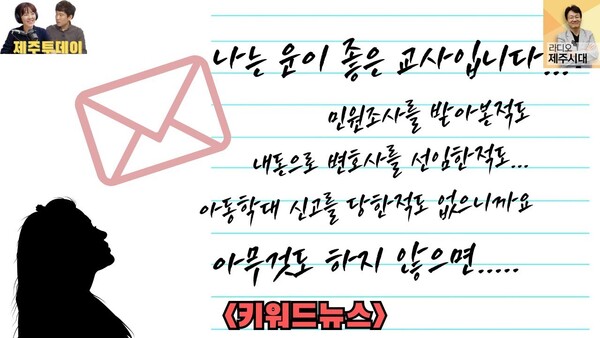 제주투데이
라디오
제주시대
나는 윤이 좋은 교사입니다....
민원조사를 받아본적도
내돈으로 변호사를 선임한적도...
아동학대 신고를 당한적도 없으니까요
아무것도 하지 않으면.....
<키워드뉴스>